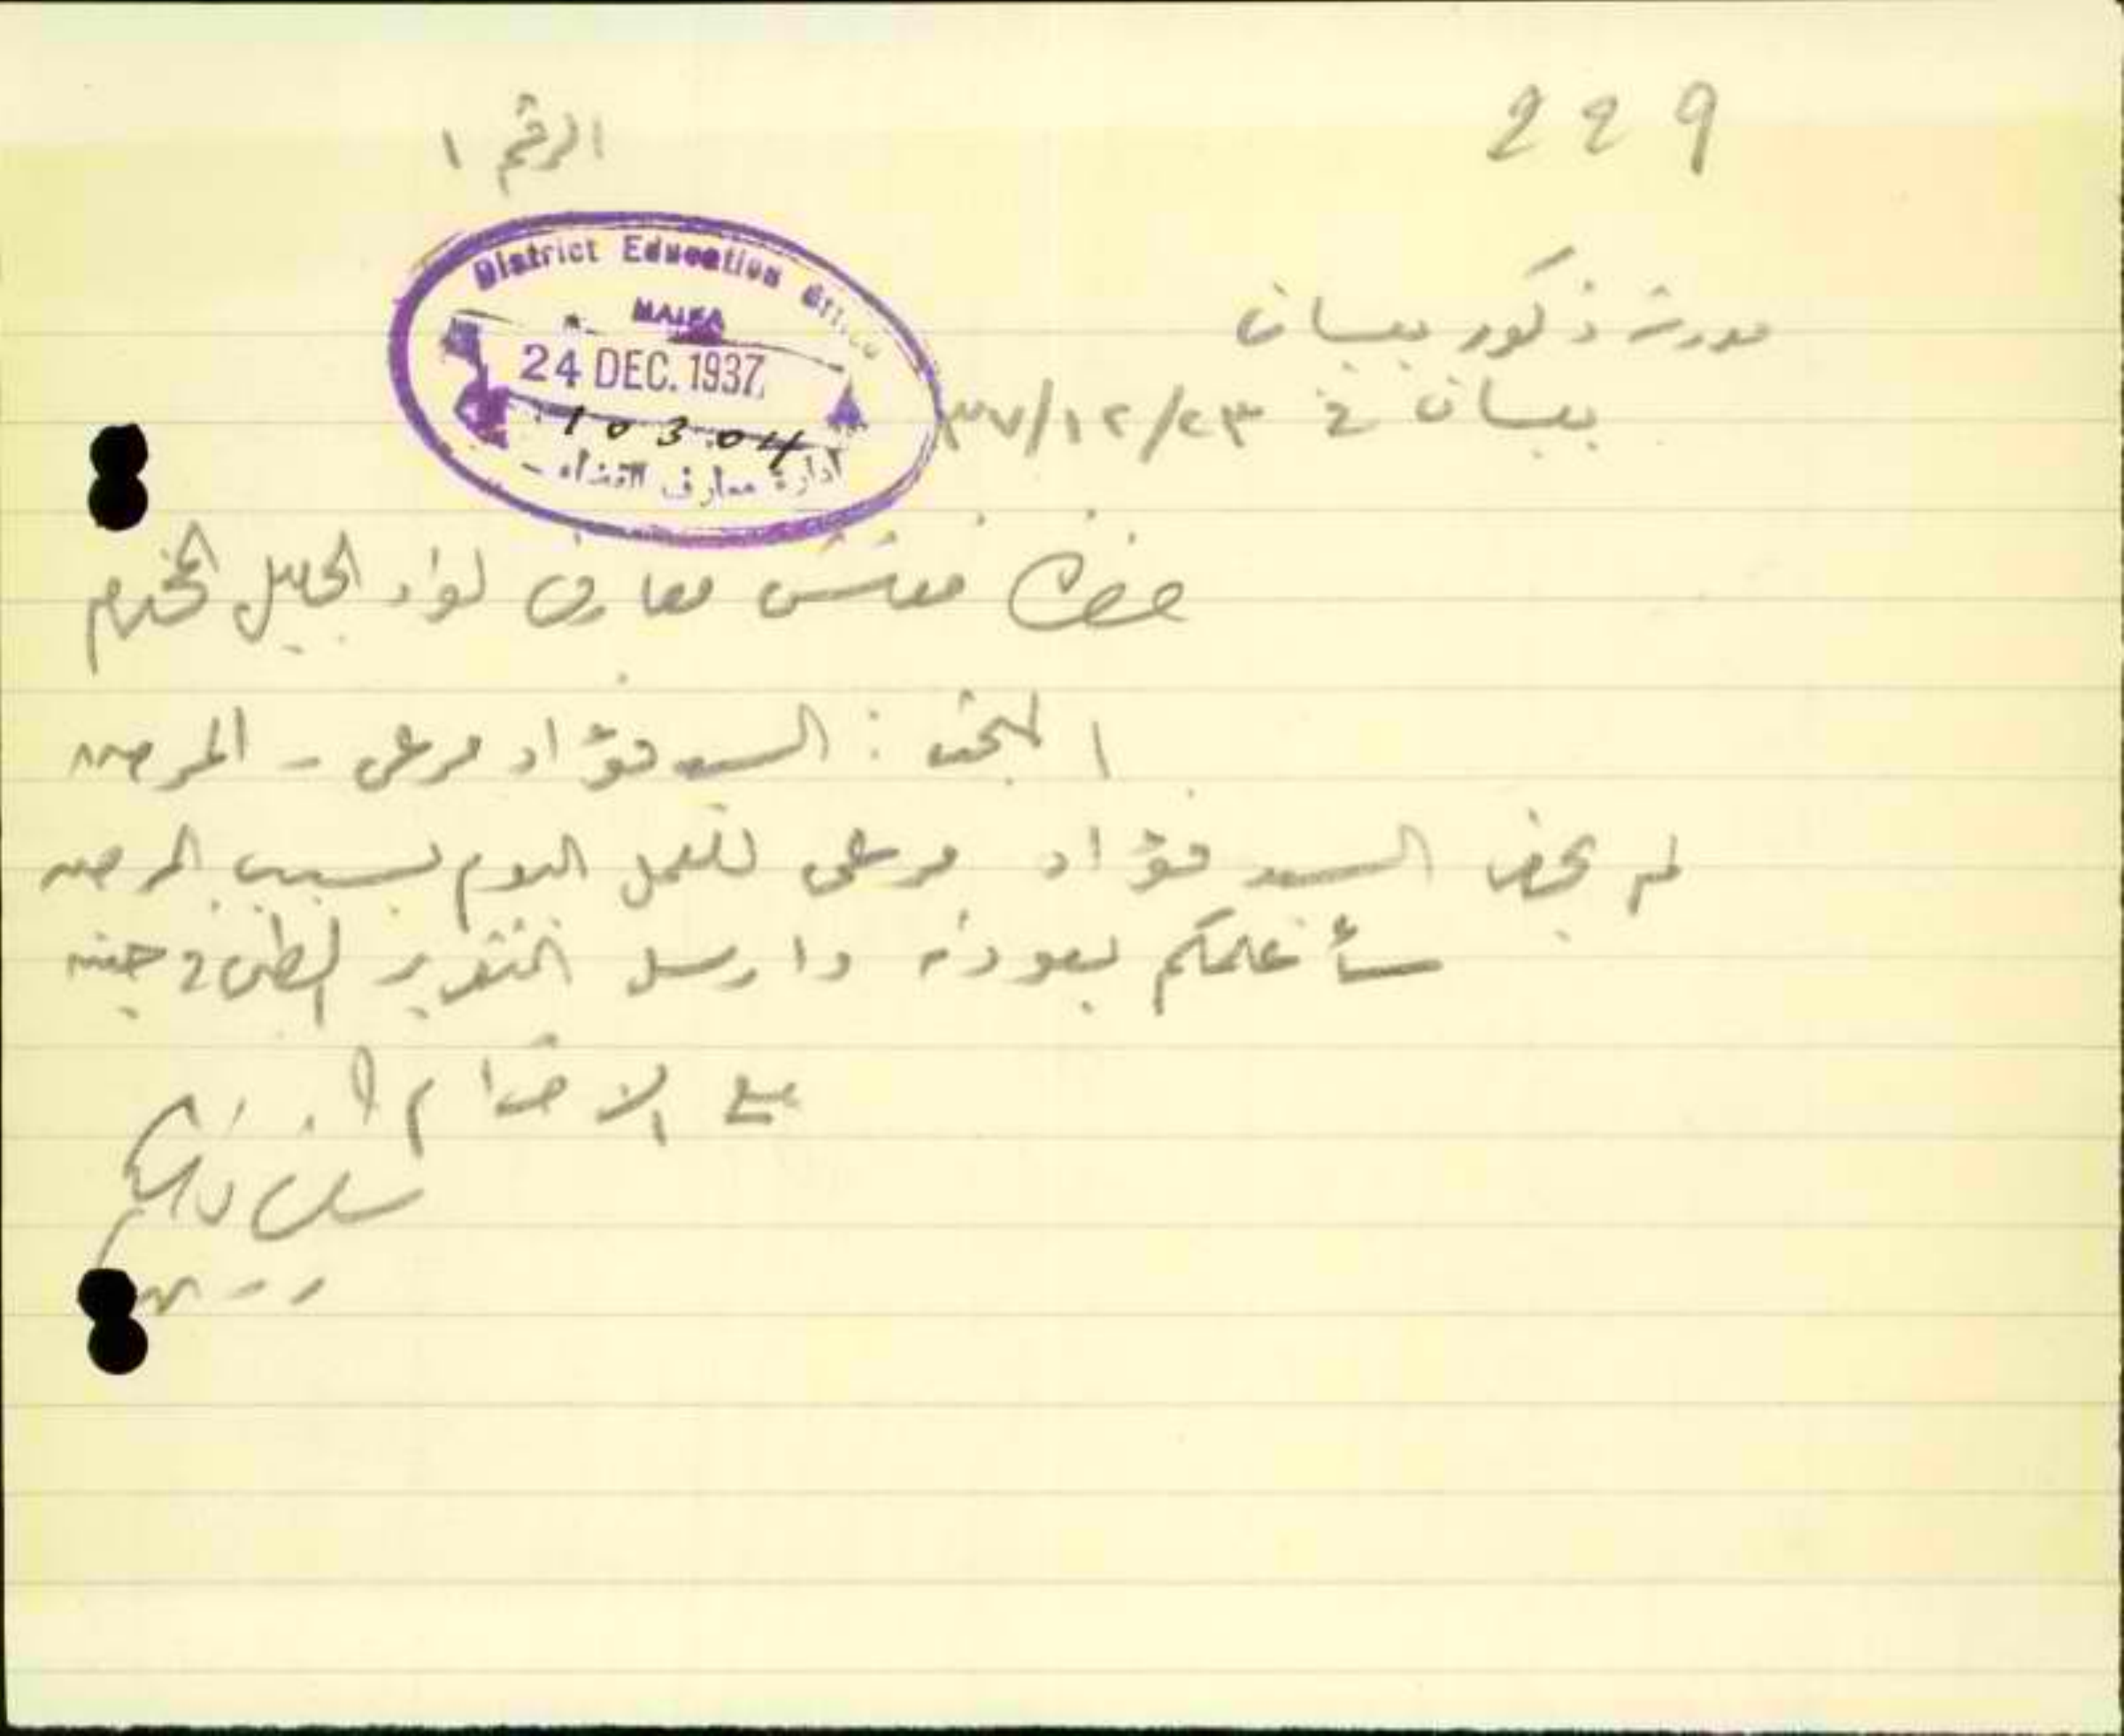 229
الرقم ١
District Education Office
HAIFA
24 DEC. 1937
10304
ادارة معارف القضاء
مدرسة ذكور بيسان
بيسان في ٢٣/١٢/٣٧
حضرة مفتش معارف لواء الجليل المحترم
المبحث : السيد فؤاد مرعي - المرض
لم يحضر السيد فؤاد مرعي للعمل اليوم بسبب المرض
سأعلمكم بعودته وارسل التقرير الطبي في حينه
مع الاحترام